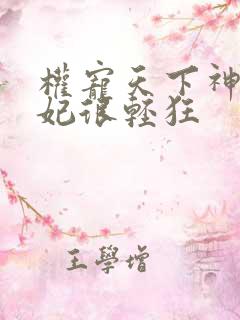 權寵天下神
妃很輕狂
王學增